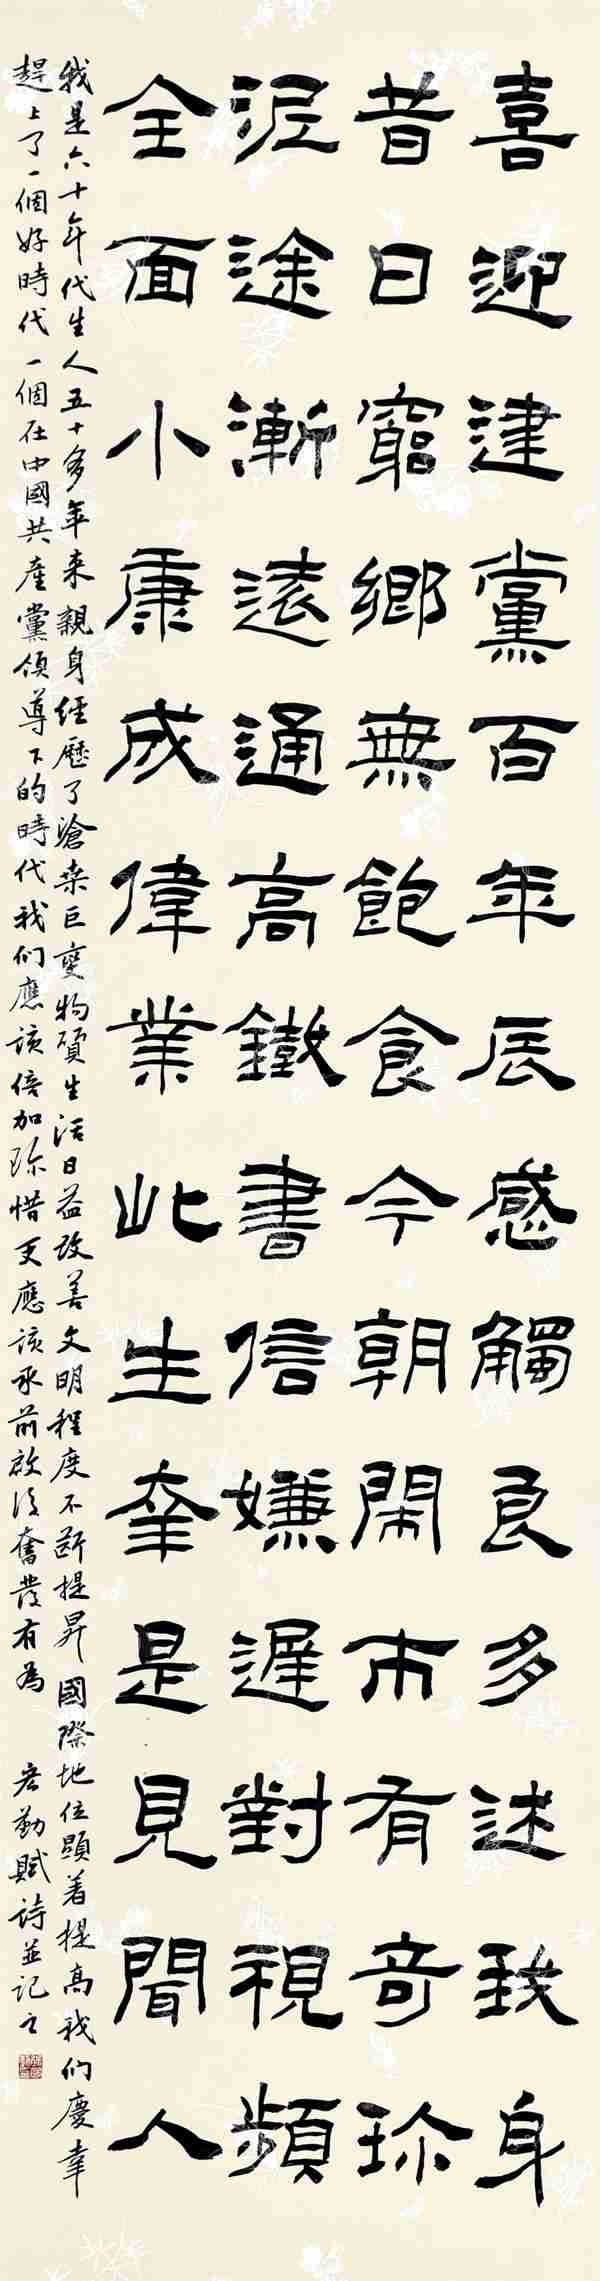 喜迎建黨百年辰感觸良多述我身
昔日窮鄉無飽食今朝鬧市有奇珍
泥途漸遠通高鐵書信嫌遲對視頻
全面小康成偉業此生幸是見聞人
我是六十年代生人五十多年来親身經歷了滄桑巨變物質生活日益改善文明程度不斷提昇國際地位顯著提高我们慶幸
趕上了一個好時代一個在中國共產黨領導下的時代我们應該倍加珍惜更應該承前啟後奮發有為 勤賦詩並記之